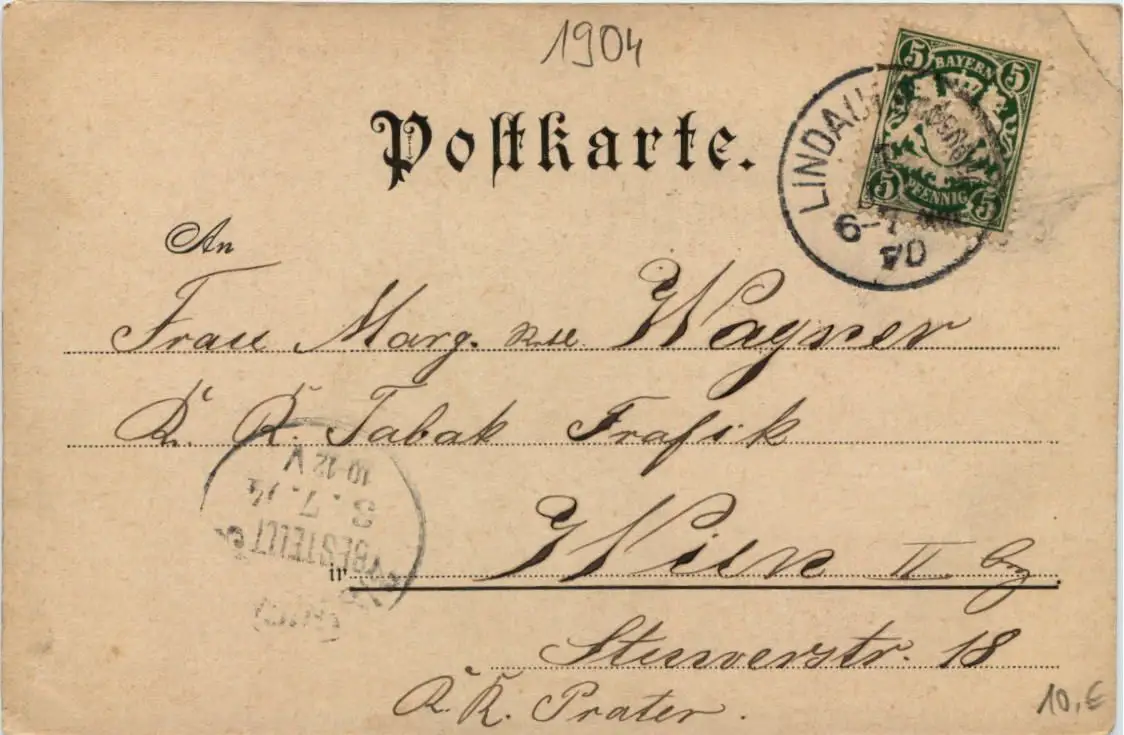 1904
5 BAYERN 5
5 PFENNIG 5
LINDAU
6-7
04
Postkarte.
An
Frau Marg. Wagner
K. K. Tabak Trafik
in Wien II Bez
Stuwerstr. 18
K. K. Prater.
BESTELLT
3.7.4
10-12 V
10,€